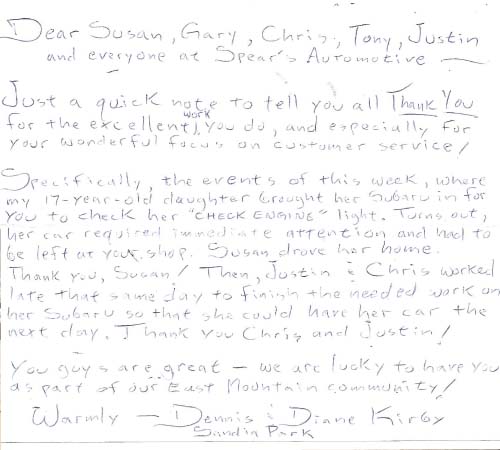 Dear Susan, Gary, Chris, Tony, Justin
and everyone at Spear's Automotive —
Just a quick note to tell you all Thank You
for the excellent work you do, and especially for
your wonderful focus on customer service!
Specifically, the events of this week, where
my 17-year-old daughter brought her Subaru in for
you to check her "CHECK ENGINE" light. Turns out,
her car required immediate attention and had to
be left at your shop. Susan drove her home.
Thank you, Susan! Then, Justin & Chris worked
late that same day to finish the needed work on
her Subaru so that she could have her car the
next day. Thank you Chris and Justin!
You guys are great — we are lucky to have you
as part of our East Mountain community!
Warmly — Dennis & Diane Kirby
Sandia Park